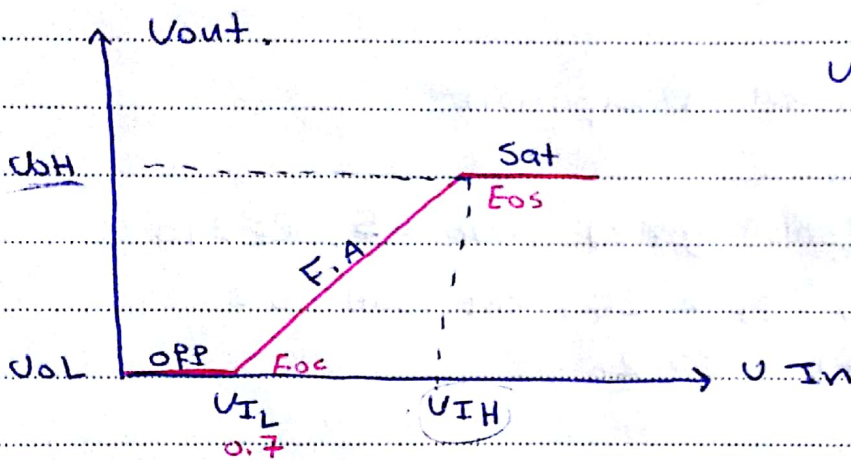 Vout.
V
VOH
Sat
EOS
F.A
VOL
OFF
EOC
V In
VIL
VIH
0.7